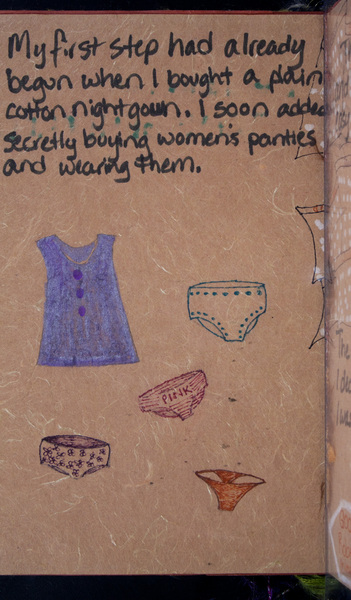 My first step had already
begun when I bought a plain
cotton nightgown. I soon added
secretly buying women's panties
and wearing them.
PINK